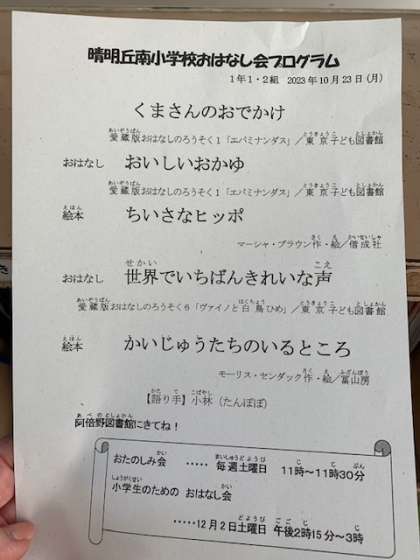 晴明丘南小学校おはなし会プログラム
1年1・2組 2023年10月23日(月)
くまさんのおでかけ
愛蔵版おはなしのろうそく1「エパミナンダス」／東京子ども図書館
おはなし おいしいおかゆ
愛蔵版おはなしのろうそく1「エパミナンダス」／東京子ども図書館
絵本 ちいさなヒッポ
マーシャ・ブラウン作・絵／偕成社
おはなし 世界でいちばんきれいな声
愛蔵版おはなしのろうそく6「ヴァイノと白鳥ひめ」／東京子ども図書館
絵本 かいじゅうたちのいるところ
モーリス・センダック作・絵／冨山房
【語り手】小林（たんぽぽ）
阿倍野図書館にきてね！
おたのしみ会 ･････ 毎週土曜日 11時～11時30分
小学生のための おはなし会
･････12月2日土曜日 午後2時15分～3時